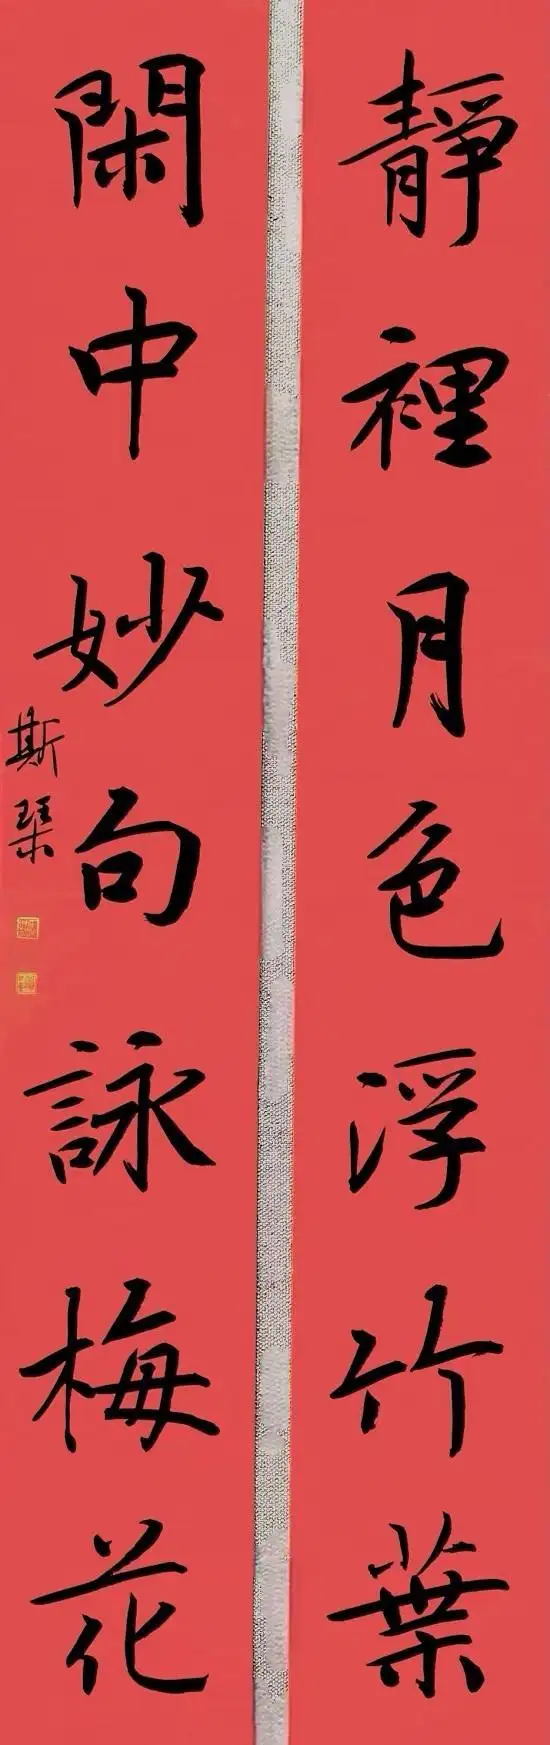 靜裡月色浮竹葉
閑中妙句詠梅花
斯琹